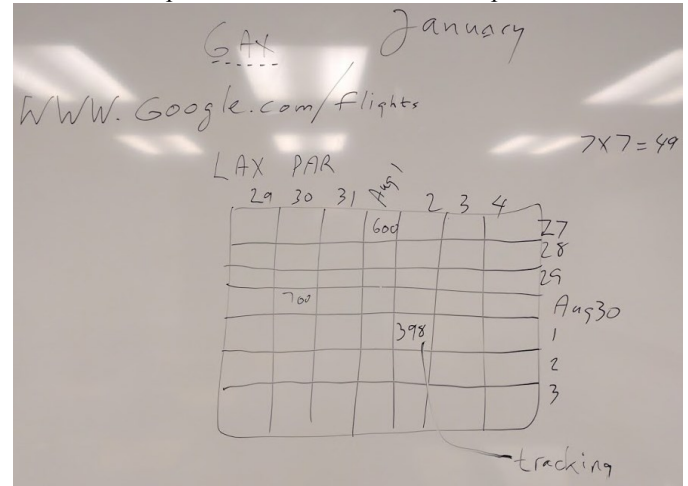 GAX January
WWW.Google.com/flights
7x7=49
LAX PAR
29 30 31 Aug1 2 3 4
600 27
28
29
700 Aug30
398 1
2
3
tracking